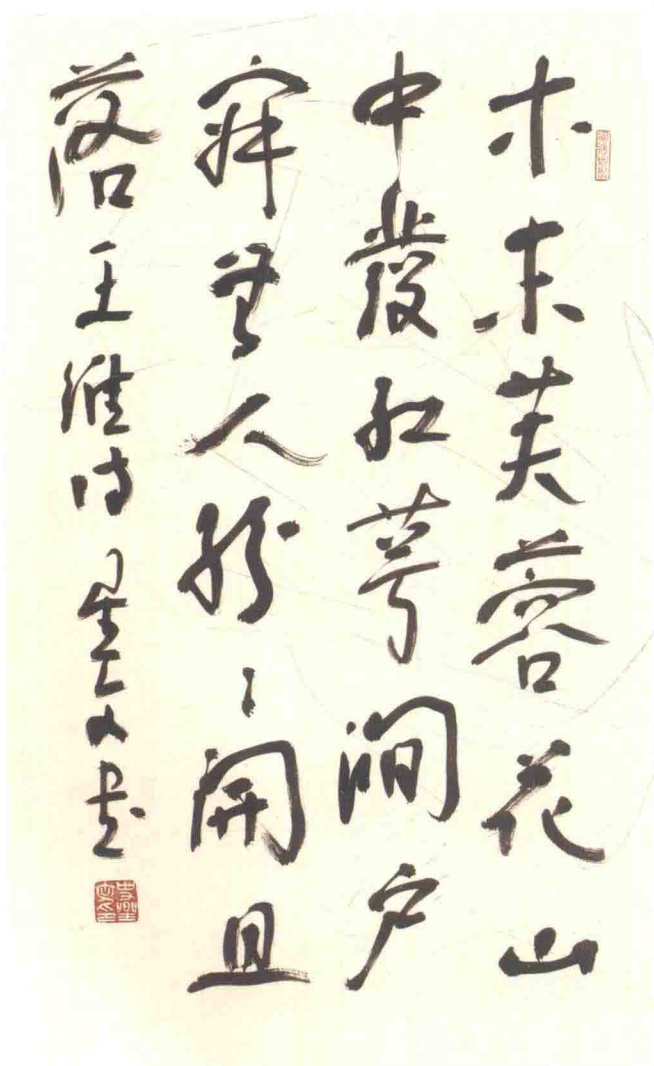 木末芙蓉花山
中發紅萼澗户
寂無人紛〻開且
落王維詩星文書